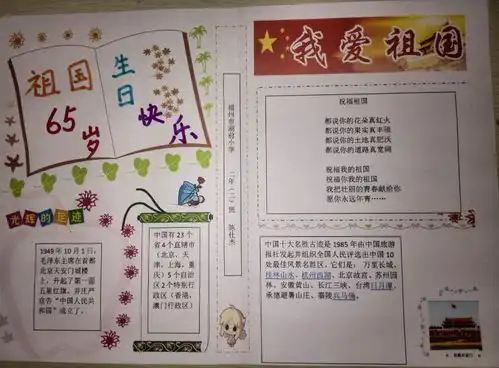 祖国
生日
快乐
65岁
光辉的足迹
1949年10月1日，
毛泽东主席在首都
北京天安门城楼
上，升起了第一面
五星红旗，并庄严
宣告“中国人民共
和国”成立了。
中国有23个
省4个直辖市
（北京、天
津、上海、重
庆）5个自治
区2个特别行
政区（香港、
澳门行政区）
二年（二）班
我爱祖国
祝福祖国
都说你的花朵真红火
都说你的果实真丰硕
都说你的土地真肥沃
都说你的道路真宽阔
祝福我的祖国
祝福你我的祖国
我把壮丽的青春献给你
愿你永远年青……
中国十大名胜古迹是1985年由中国旅游
报社发起并组织全国人民评选出中国10
处最佳风景名胜区，它们是：万里长城、
桂林山水、杭州西湖、北京故宫、苏州园
林、安徽黄山、长江三峡、台湾日月潭、
承德避暑山庄、秦陵兵马俑。